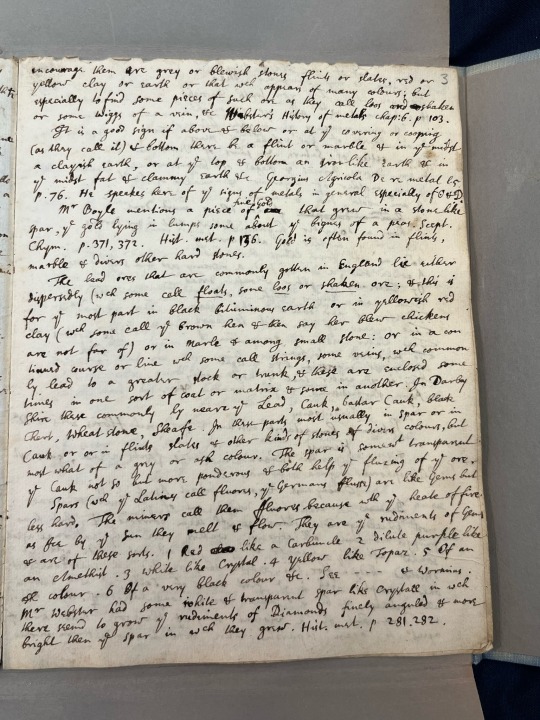 3
encourage them are grey or blewish stones flints or slates, red or
yellow clay or earth or that wch appears of many colours; but
especially to find some pieces of such ore as they call loos and shaken
or some twiggs of a vein, &c Webster's History of metals chap: 6. p 103.
It is a good sign if above & below or at ye covering or cooping
(as they call it) & bottom there be a flint or marble & in ye midst
a clayish earth, or at ye top & bottom an Iron like Earth & in
ye midst fat & clammy earth &c Georgius Agricola De re metal l 5
p. 76. He speakes here of ye signs of metals in general especially of
Mr Boyle mentions a piece of fine gold that grew in a stone like
spar, ye gold lying in lumps some about ye bignes of a pea. Scept.
Chym. p. 371, 372. Hist. met. p 136. Gold is often found in flints,
marble & divers other hard stones.
The lead ores that are commonly gotten in England lie either
dispersedly (wch some call floats, some loos or shaken ore; & this is
for ye most part in black bituminous earth or in yellowish red
clay (wch some call ye brown hen & then say her blew chickens
are not far of) or in Marle & among small stone: or in a con
tinued course or line wch some call strings, some veins, wch common
ly lead to a greater stock or trunk, & these are enclosed some
times in one sort of coat or matrix & some in another. In Darby
shire these commonly ly neare ye Lead, Cauk, bastar Cauk, black
Chert, wheat stone, Sheafe. In these parts most usually in spar or in
Cauk or or in flints slates & other kinds of stones of divers colours, but
most what of a grey or ash colour. The spar is somewt transparent
ye Cauk not so but more ponderous & both help ye fluxing of ye ore.
Spars (wch ye Latines call fluores, ye Germans flusse) are like Gems but
less hard. The miners call them fluores because with ye heate of fire
as Ice by ye Sun they melt & flow. They are ye rudiments of Gems
& are of these sorts. 1 Red like a Carbuncle 2 dilute purple like
an Amethist. 3 white like Crystal. 4 Yellow like Topaz. 5 Of an
colour. 6 Of a very black colour &c. See & Wormius.
Mr Webster had some white & transparent spar like Crystall in wch
there seemd to grow ye rudiments of Diamonds finely angled & more
bright then ye spar in wch they grew. Hist. met. p 281. 282.